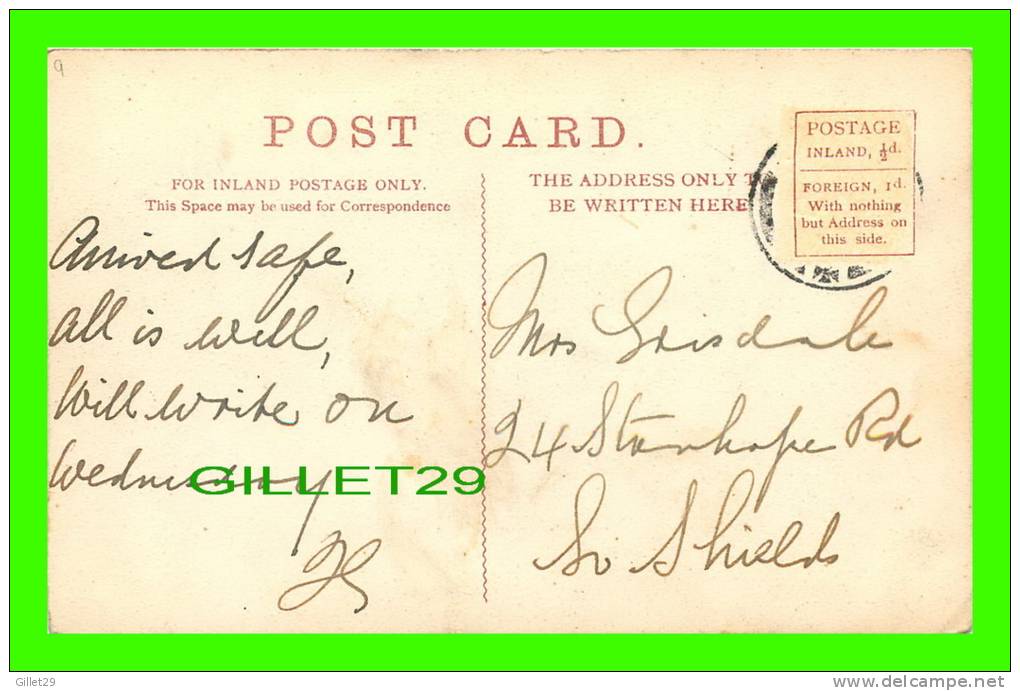 9
POST CARD.
FOR INLAND POSTAGE ONLY.
This Space may be used for Correspondence
THE ADDRESS ONLY T
BE WRITTEN HERE
POSTAGE
INLAND, ½d.
FOREIGN, 1d.
With nothing
but Address on
this side.
Arrived safe,
all is well,
Will write on
Wednesday
Mrs Grisdale
24 Stanhope Rd
So Shields
GILLET29
Gillet29
delcampe.net